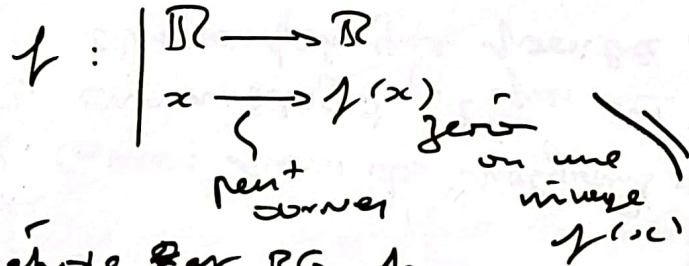 f : | ℝ ⟶ ℝ
x ⟶ f(x)
peut donner
zéro
ou une
image
f(x)